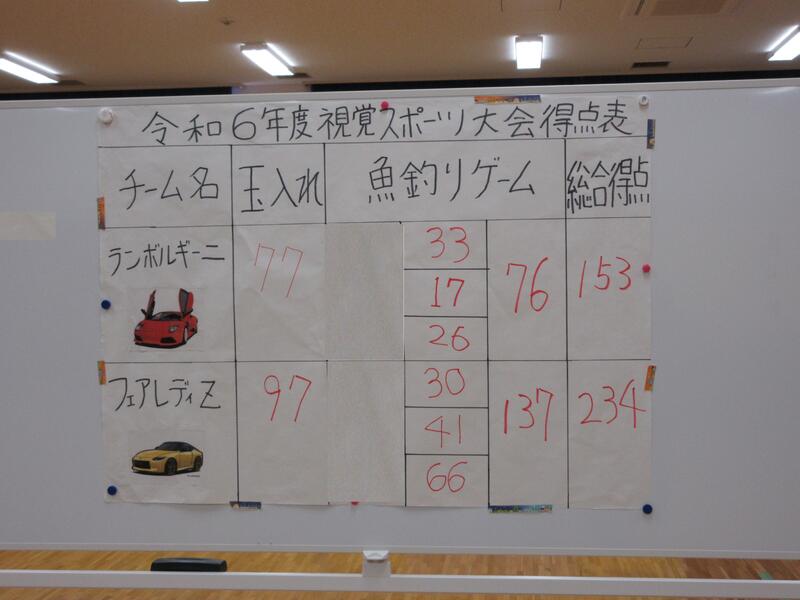 令和6年度視覚スポーツ大会得点表
チーム名 玉入れ 魚釣りゲーム 総合得点
ランボルギーニ 77 33 17 26 76 153
フェアレディZ 97 30 41 66 137 234